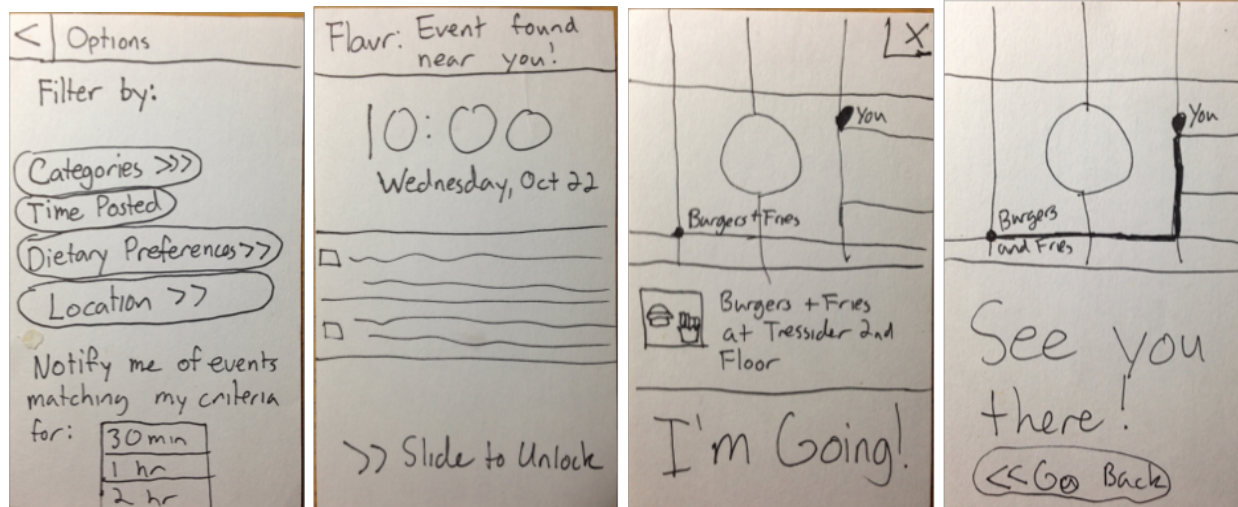 < Options
Filter by:
Categories >>>
Time Posted
Dietary Preferences >>
Location >>
Notify me of events
matching my criteria
for:
30 min
1 hr
2 hr
Flavr: Event found
near you!
10:00
Wednesday, Oct 22
>> Slide to Unlock
X
You
Burgers + Fries
Burgers + Fries
at Tressider 2nd
Floor
I'm Going!
You
Burgers
and Fries
See you
there!
<< Go Back